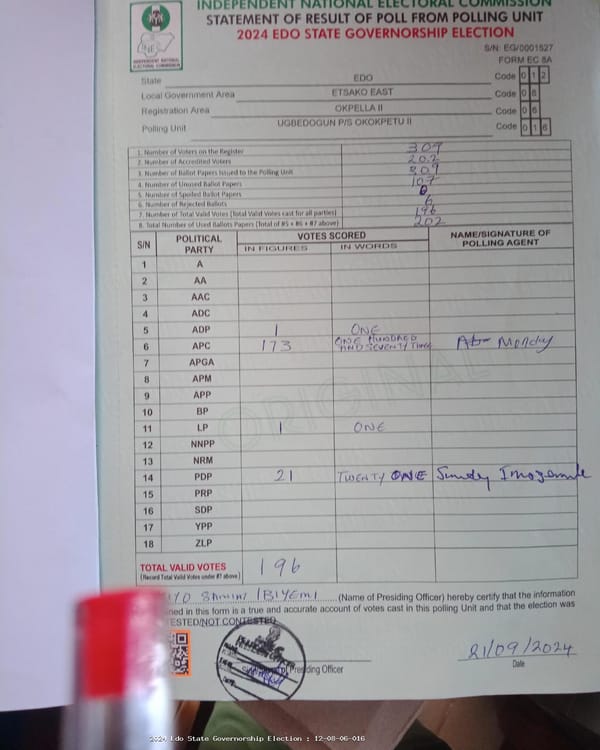 INDEPENDENT NATIONAL ELECTORAL COMMISSION
STATEMENT OF RESULT OF POLL FROM POLLING UNIT
2024 EDO STATE GOVERNORSHIP ELECTION
S/N: EG/0001527
FORM EC 8A
State EDO Code 0 1 2
Local Government Area ETSAKO EAST Code 0 8
Registration Area OKPELLA II Code 0 6
Polling Unit UGBEDOGUN P/S OKOKPETU II Code 0 1 6
1. Number of Voters on the Register 309
2. Number of Accredited Voters 202
3. Number of Ballot Papers Issued to the Polling Unit 309
4. Number of Unused Ballot Papers 107
5. Number of Spoiled Ballot Papers 0
6. Number of Rejected Ballots 6
7. Number of Total Valid Votes (Total Valid Votes cast for all parties) 196
8. Total Number of Used Ballots Papers (Total of #5 + #6 + #7 above) 202
S/N POLITICAL PARTY VOTES SCORED NAME/SIGNATURE OF POLLING AGENT
IN FIGURES IN WORDS
1 A
2 AA
3 AAC
4 ADC
5 ADP 1 ONE
6 APC 173 ONE HUNDRED AND SEVENTY THREE Monday
7 APGA
8 APM
9 APP
10 BP
11 LP 1 ONE
12 NNPP
13 NRM
14 PDP 21 TWENTY ONE
15 PRP
16 SDP
17 YPP
18 ZLP
ORIGINAL
TOTAL VALID VOTES 196
(Record Total Valid Votes under #7 above)
(Name of Presiding Officer) hereby certify that the information
ned in this form is a true and accurate account of votes cast in this polling Unit and that the election was
TESTED/NOT CONTESTED
Presiding Officer
21/09/2024
Date
2024 Edo State Governorship Election : 12-08-06-016